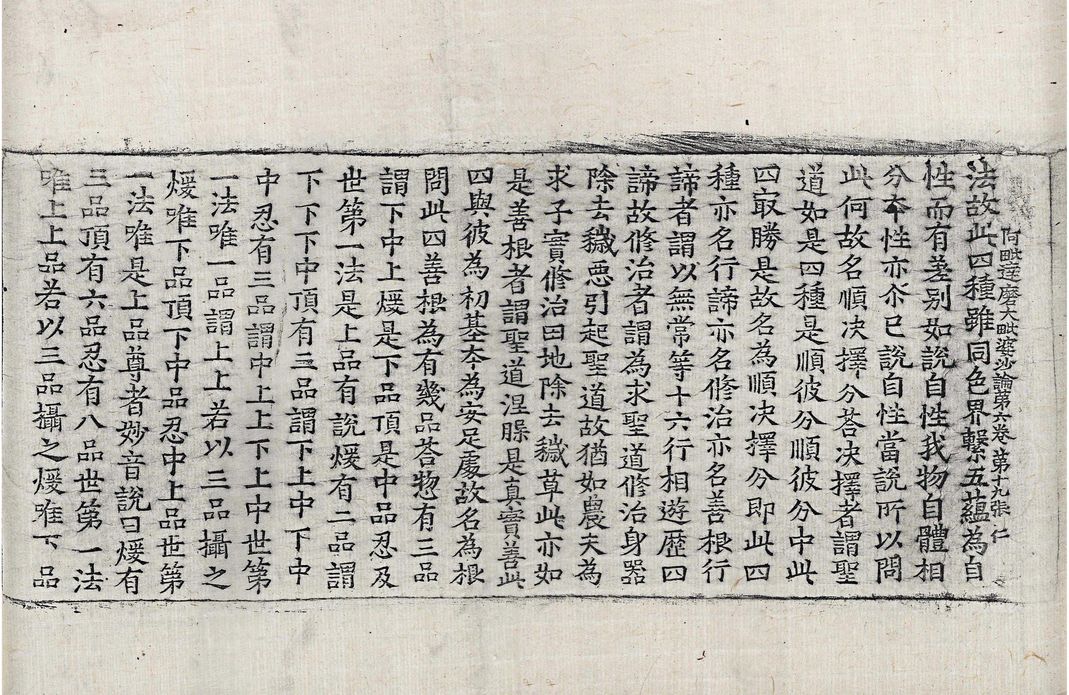 法故此四種雖同色界繫五蘊為自
阿毗達磨大毗婆沙論第六卷 第十九張 仁
性而有差別如說自性我物自體相
分本性亦尒已說自性當說所以問
此何故名順決擇分荅決擇者謂聖
道如是四種是順彼分順彼分中此
四㝡勝是故名為順決擇分即此四
種亦名行諦亦名修治亦名善根行
諦者謂以無常等十六行相遊歷四
諦故修治者謂為求聖道修治身器
除去穢惡引起聖道故猶如農夫為
求子實修治田地除去穢草此亦如
是善根者謂聖道涅槃是真實善此
四與彼為初基本為安足處故名為根
問此四善根為有幾品荅惣有三品
謂下中上煖是下品頂是中品忍及
世第一法是上品有說煖有二品謂
下下下中頂有三品謂下上中下中
中忍有三品謂中上上下上中世第
一法唯一品謂上上若以三品攝之
煖唯下品頂下中品忍中上品世第
一法唯是上品尊者妙音說曰煖有
三品頂有六品忍有八品世第一法
唯上上品若以三品攝之煖唯下品